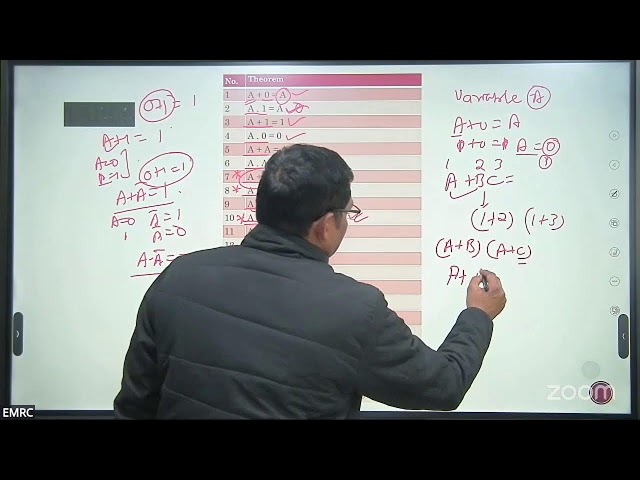 0+1 = 1
A+1 = 1
A=0
0+1=1
A+A̅=1
A=0 A̅=1
1 A̅=0
A·A̅=
No. Theorem
1 A + 0 = A
2 A . 1 = A
3 A + 1 = 1
4 A . 0 = 0
5 A + A =
6 A .
7
8
9
10
11
Variable A
A+0 = A
A=0
1
1 2 3
A +BC=
(1+2) (1+3)
(A+B) (A+C)
A+
EMRC
zoom